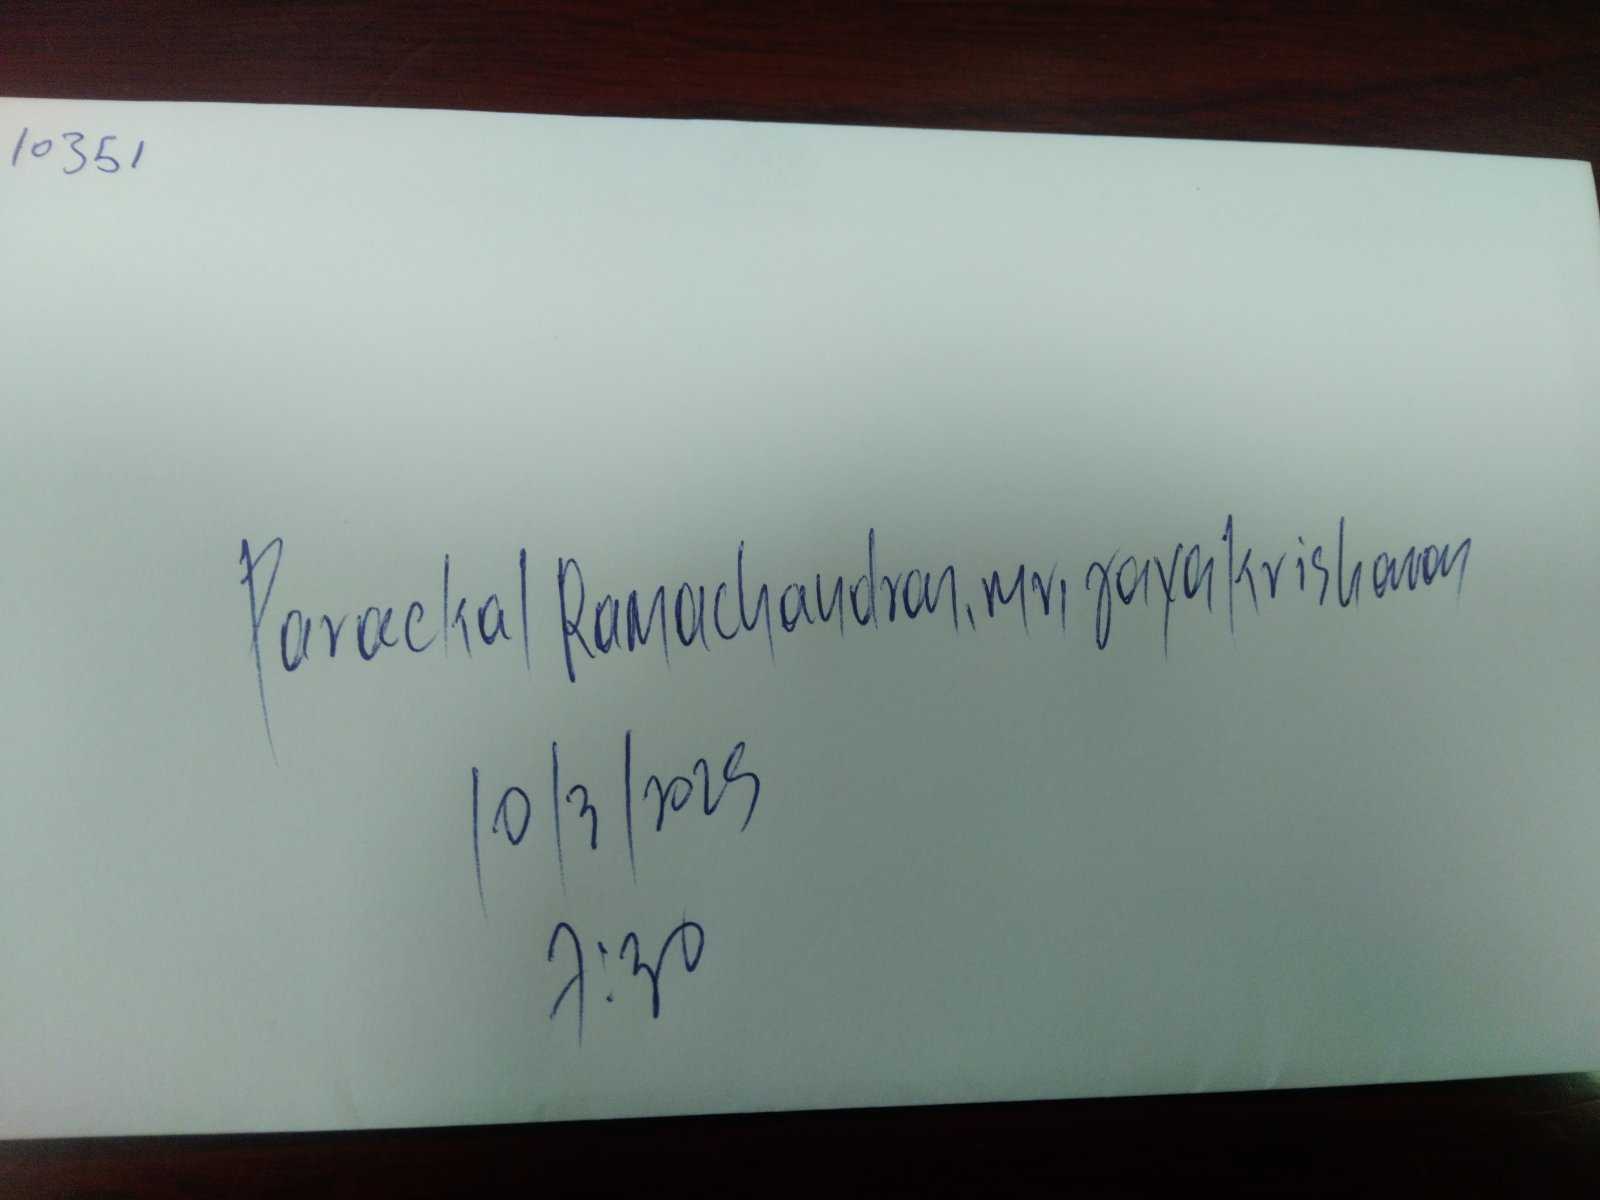 10351
Parackal Ramachandran, Mr, Jayakrishanan
10/3/2025
7:30